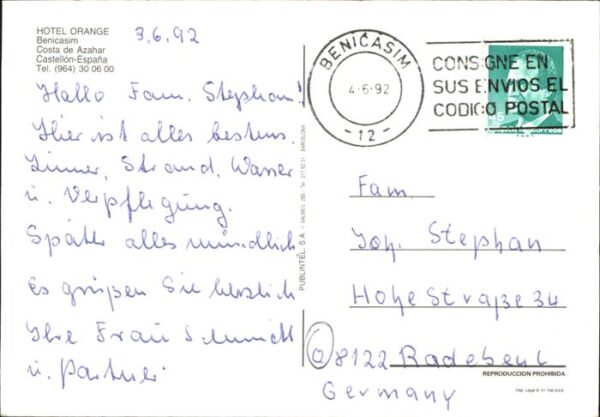 HOTEL ORANGE
Benicasim
Costa de Azahar
Castellón-España
Tel. (964) 30 06 00
3.6.92
Hallo Fam. Stephan!
Hier ist alles bestens.
Zimmer, Strand, Wasser
u. Verpflegung.
Später alles mündlich
Es grüßen Sie herzlich
Ihre Frau Schmidt
u. Partner.
PUBLINTEL, S.A.
BENICASIM
4-6-92
-12-
CONSIGNE EN
SUS ENVIOS EL
CODIGO POSTAL
45
Fam.
Joh. Stephan
Hohe Straße 34
O 8122 Radebeul
Germany
REPRODUCCION PROHIBIDA